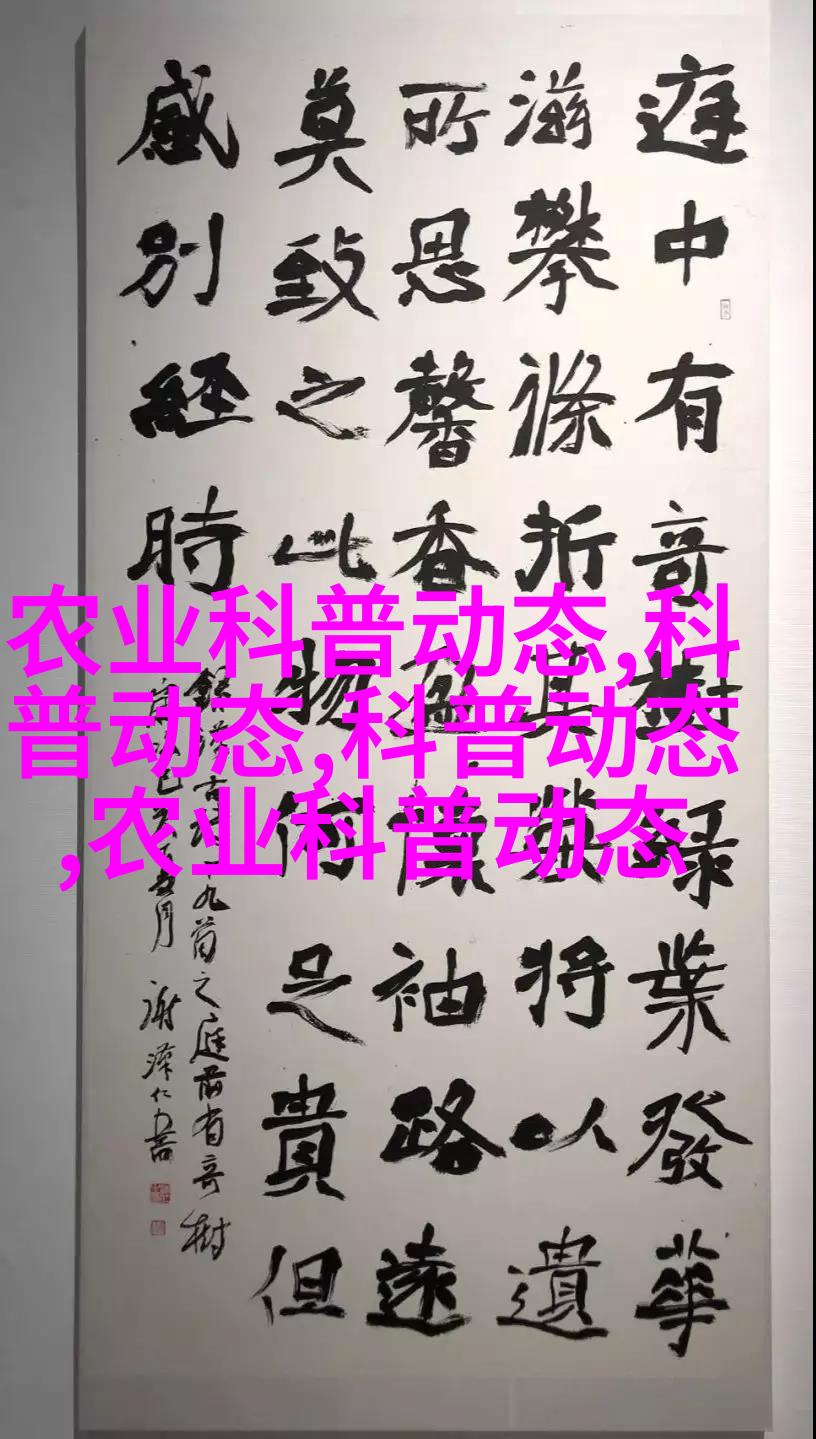 庭中有奇樹綠葉發華
滋攀條折其榮將以遺
所思馨香盈懷袖路遠
莫致之此物何足貴但
感別經時
錄漢古詩十九首之庭前有奇樹
月 謝澤仁書
农业科普动态,科
普动态,科普动态
,农业科普动态